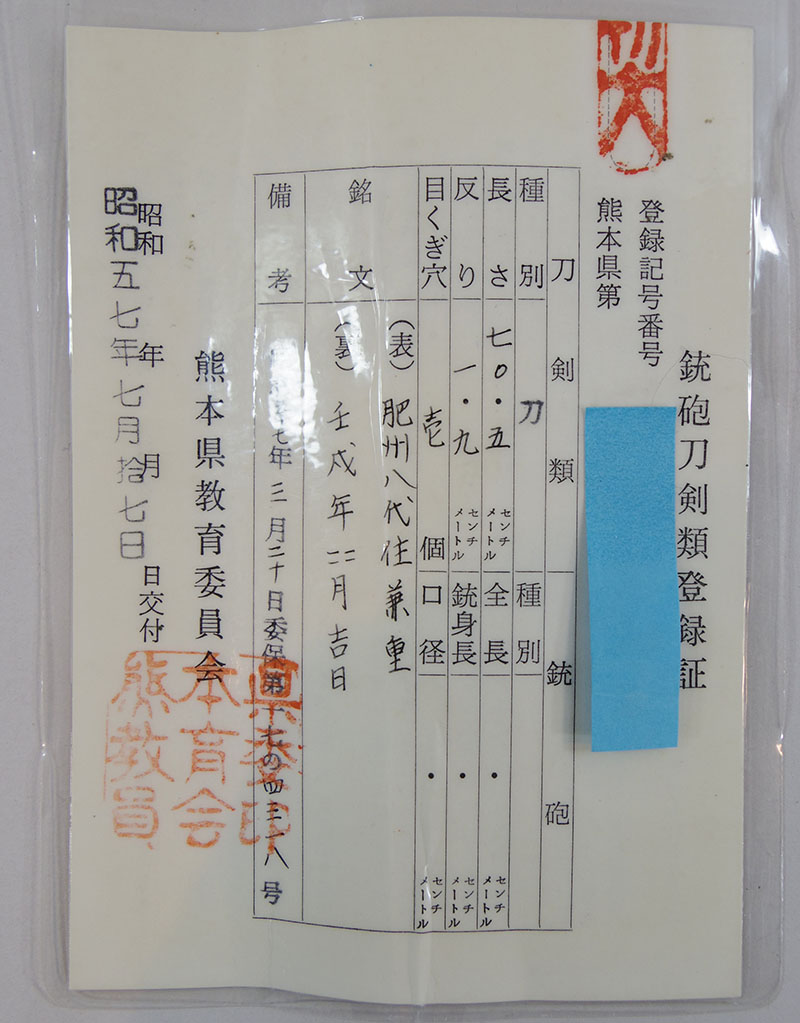 銃砲刀剣類登録証
登録記号番号
熊本県第
刀剣類
銃砲
種別
刀
種別
長さ
七〇・五
センチメートル
全長
・
センチメートル
反り
一・九
センチメートル
銃身長
・
センチメートル
目くぎ穴
壱
個
口径
・
センチメートル
銘文
(表) 肥州八代住兼重
(裏) 壬戌年二月吉日
備考
七年三月二十日委保第十七の四三一八号
熊本県教育委員会
昭和 年 月 日交付
昭和五七年七月拾七日
県委印
本育会
熊教員